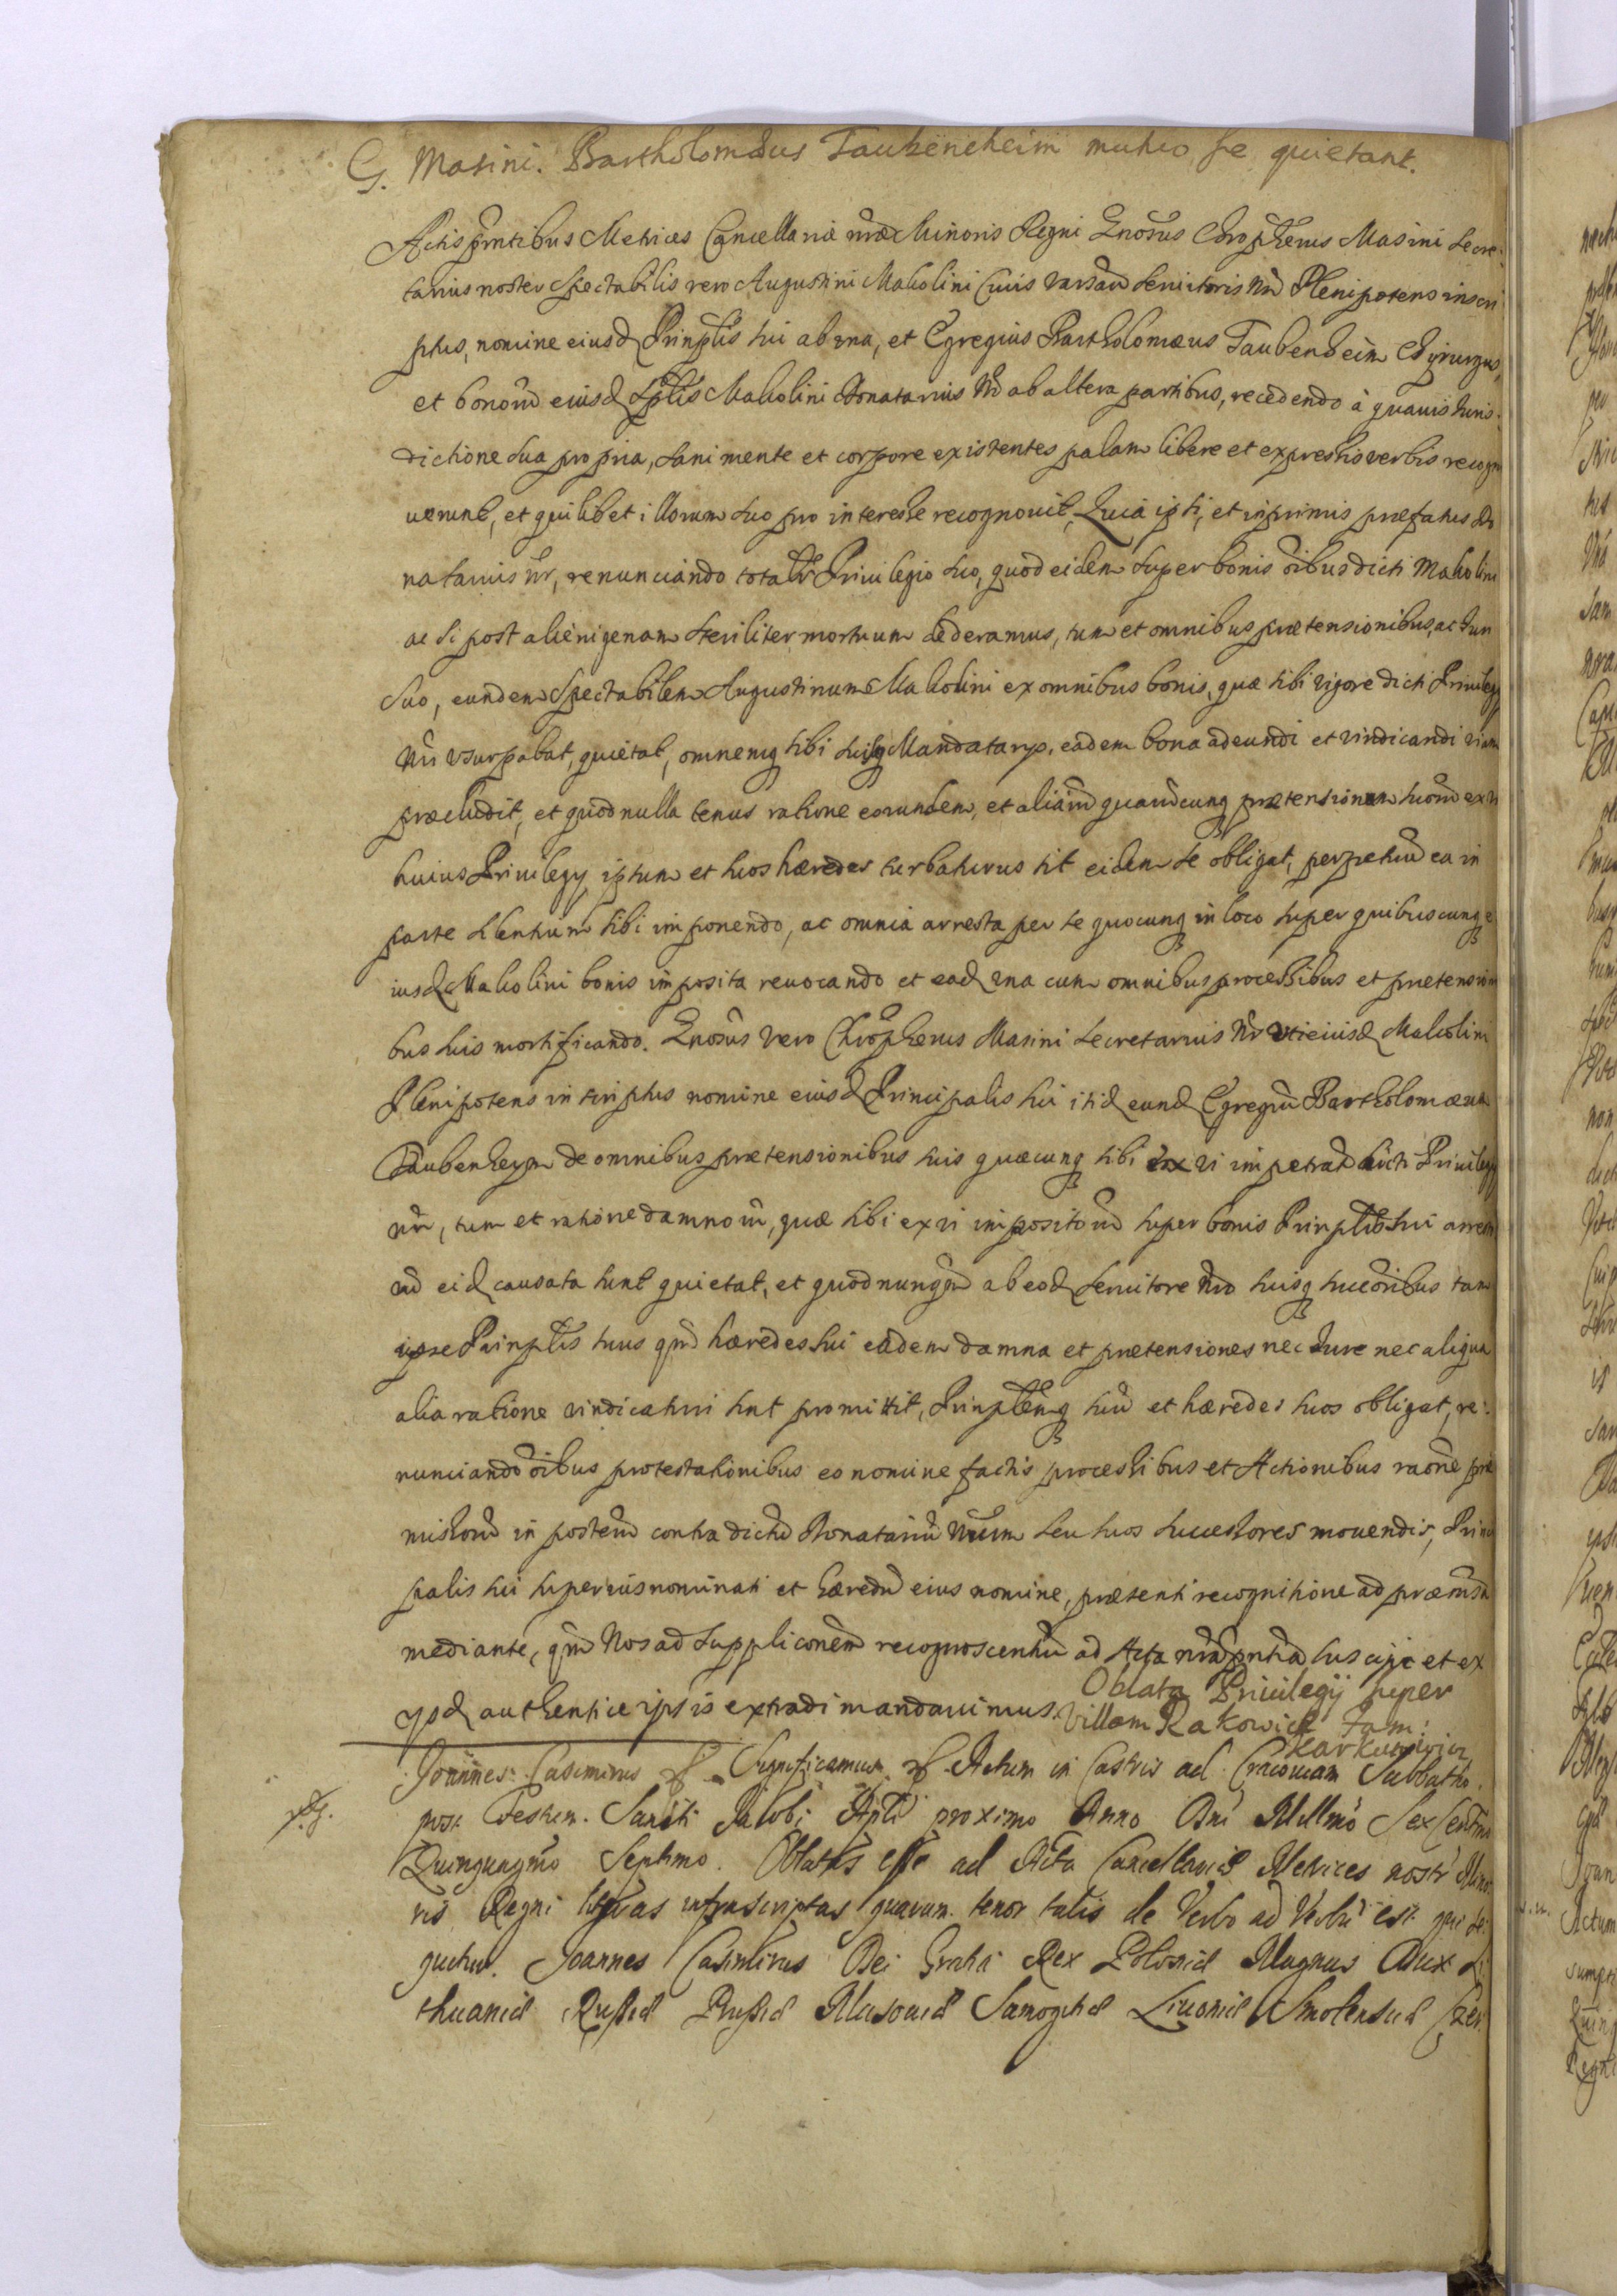 G. Masini. Bartholomæus Taubeneheim mutuo se quietant.
Actis pñtibus Metrices Cancellariæ nræ Minoris Regni Gnosus Chrõpherus Masini Secre-
tarius noster Spectabilis vero Augustini Maholini Civis Varsaviens servitoris nri Plenipotens inscri
ptus, nomine eiusd Prinplis sui ab una, et Egregius Bartholomæus Taubenheim Chyrurgus,
et bonorũ eiusd Maholini Donatarius Nr ab altera partibus, recedendo à quavis Juris-
dictione sua propria, sani mente et corpore existentes palam libere et expressis verbis recogno
verunt, et quilibet illorum suo pro interesse recognovit, Quia ipsi, et inprimis præfatus Do
natarius nr, renunciando totalr Privilegio suo, quod eidem super bonis oibus dicti Maholini
ac si post alienigenam steriliter mortuum dederamus, tum et omnibus prætensionibus, ac Juri
suo, eundem Spectabilem Augustinum Maholini ex omnibus bonis, quæ sibi vigore dicti Privilegy
nri usurpabat, quietat, omnemq sibi suisq Mandatarys, eadem bona adeundi et vindicandi viam
præcludit, et quod nulla tenus ratione eorundem, et aliarũ quarũcunq prætensionum suorũ ex vi
huius Privilegy ipsum et suos hæredes turbaturus sit eidem se obligat, perpetuũ ea in
parte silentium sibi imponendo, ac omnia arresta per se quocunq in loco super quibuscunq e
iusd Maholini bonis imposita revocando et ead una cum omnibus processibus et prætensioni
bus suis mortificando. Gnosus vero Chrõpherus Masini Secretarius Nr uti eiusd Maholini
Plenipotens inscriptus nomine eiusd Principalis sui itid eund Egregiũ Bartholomæum
Taubenheym de omnibus prætensionibus suis quæcunq sibi ex vi impetrati dicti Privilegy
nri, tum et ratione damnorũ, quæ sibi ex vi impositorũ super bonis Prinplis sui arresto
rũ eid causata sunt quietat, et quod nunqm ab eod servitore nro suisq succoribus tam
ipse Prinplis suus qm hæredes sui eadem damna et prætensiones nec Jure nec aliqua
alia ratione vindicaturi sint promittit, Prinplemq suũ et hæredes suos obligat, re-
nunciando oibus protestationibus eo nomine factis processibus et Actionibus raõne præ
missorũ in posterũ contra dictũ Donatariũ nrum seu suos successores movendis, Princi
palis sui superius nominati et hæredũ eius nomine, præsenti recognitione ad præmissa
mediante, qm Nos ad supplicõnem recognoscentiũ ad Acta nra pñtia suscipi et ex
ysd authentice ipsis extradi mandavimus.
Oblata Privilegij super
villam Rakowice Fam:
Karkuszowicz
Joannes Casimirus Significamus Actum in Castris ad Cracoviam Sabbatho
post Festum Sancti Jacobi Apli proximo Anno Dni Millmo Sexcentmo
Quinquagmo Septimo. Oblatas esse ad Acta Cancellariæ Metrices nostr Mino
ris Regni literas infrascriptas quarum tenor talis de Verbo ad Verbũ est qui se
quitur. Joannes Casimirus Dei Gratia Rex Poloniæ Magnus Dux Li
thuaniæ Russiæ Prussiæ Masoviæ Samogitiæ Livoniæ Smolensciæ Czer